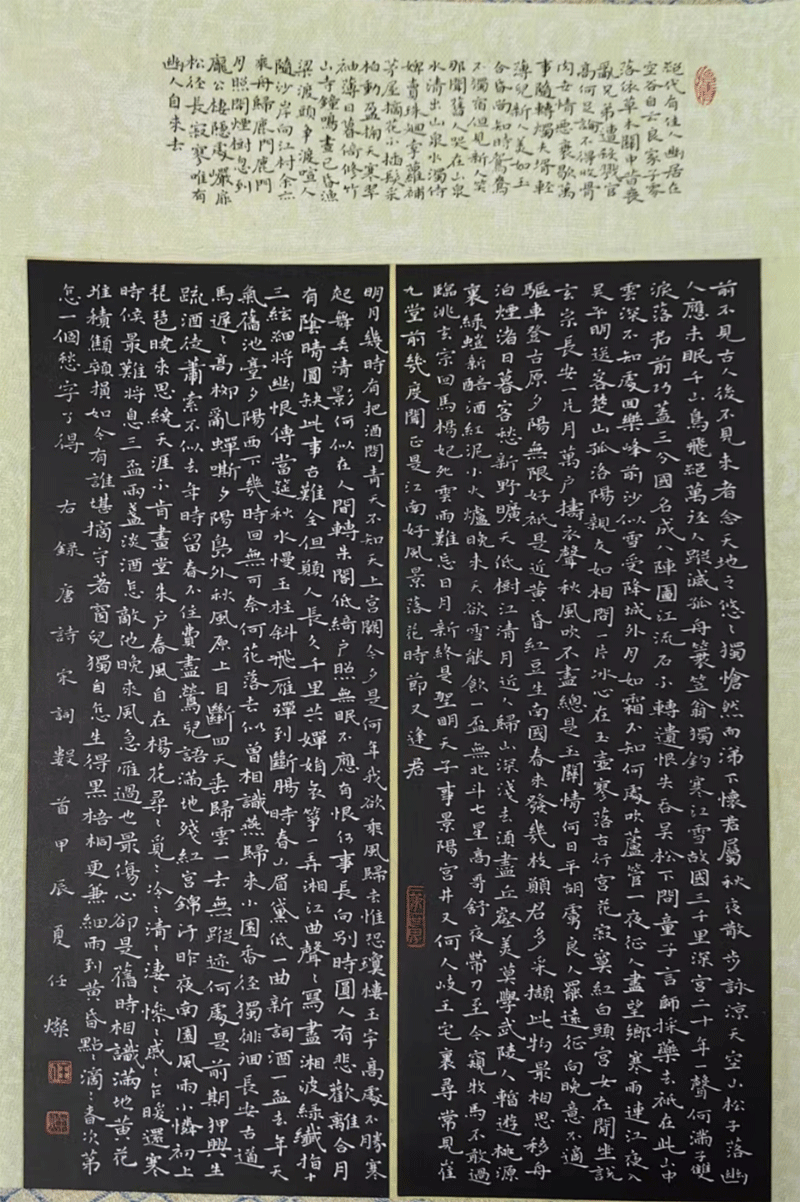 絕代有佳人幽居在
空谷自云良家子零
落依草木關中昔喪
亂兄弟遭殺戮官
高何足論不得收骨
肉世情惡衰歇萬
事隨轉燭夫壻輕
薄兒新人美如玉
合昏尚知時鴛鴦
不獨宿但見新人笑
那聞舊人哭在山泉
水清出山泉水濁侍
婢賣珠迴牽蘿補
茅屋摘花不插髮采
柏動盈掬天寒翠
袖薄日暮倚修竹
山寺鐘鳴晝已昏漁
梁渡頭爭渡喧人
隨沙岸向江村余亦
乘舟歸鹿門鹿門
月照開煙樹忽到
龐公棲隱處巖扉
松徑長寂寥唯有
幽人自來去
前不見古人後不見來者念天地之悠〻獨愴然而涕下懷君屬秋夜散步詠涼天空山松子落幽
人應未眠千山鳥飛絕萬逕人蹤滅孤舟簑笠翁獨釣寒江雪故國三千里深宮二十年一聲何滿子雙
淚落君前功蓋三分國名成八陣圖江流石不轉遺恨失吞吳松下問童子言師採藥去祇在此山中
雲深不知處回樂峰前沙似雪受降城外月如霜不知何處吹蘆管一夜征人盡望鄉寒雨連江夜入
吳平明送客楚山孤洛陽親友如相問一片冰心在玉壺寥落古行宮花寂寞紅白頭宮女在閒坐說
玄宗長安一片月萬戶擣衣聲秋風吹不盡總是玉關情何日平胡虜良人罷遠征向晚意不適
驅車登古原夕陽無限好祇是近黃昏紅豆生南國春來發幾枝願君多采擷此物最相思移舟
泊煙渚日暮客愁新野曠天低樹江清月近人歸山深淺去須盡丘壑美莫學武陵人暫遊桃源
裏綠螘新醅酒紅泥小火爐晚來天欲雪能飲一盃無北斗七星高哥舒夜帶刀至今窺牧馬不敢過
臨洮玄宗回馬楊妃死雲雨難忘日月新終是聖明天子事景陽宮井又何人岐王宅裏尋常見崔
九堂前幾度聞正是江南好風景落花時節又逢君
明月幾時有把酒問青天不知天上宮闕今夕是何年我欲乘風歸去惟恐瓊樓玉宇高處不勝寒
起舞弄清影何似在人間轉朱閣低綺戶照無眠不應有恨何事長向別時圓人有悲歡離合月
有陰晴圓缺此事古難全但願人長久千里共嬋娟哀箏一弄湘江曲聲〻寫盡湘波綠纖指十
三絃細將幽恨傳當筵秋水慢玉柱斜飛雁彈到斷腸時春山眉黛低一曲新詞酒一盃去年天
氣舊池臺夕陽西下幾時回無可奈何花落去似曾相識燕歸來小園香徑獨徘徊長安古道
馬遲〻高柳亂蟬嘶夕陽鳥外秋風原上目斷四天垂歸雲一去無蹤迹何處是前期狎興生
疏酒徒蕭索不似去年時留春不住費盡鶯兒語滿地殘紅宮錦汙昨夜南園風雨小憐初上
琵琶曉來思繞天涯不肯畫堂朱戶春風自在楊花尋〻覓〻冷〻清〻淒〻慘〻戚〻乍暖還寒
時候最難將息三盃兩盞淡酒怎敵他晚來風急雁過也最傷心卻是舊時相識滿地黃花
堆積顦顇損如今有誰堪摘守著窗兒獨自怎生得黑梧桐更兼細雨到黃昏點〻滴〻者次第
怎一個愁字了得 右錄唐詩宋詞數首甲辰夏任燦